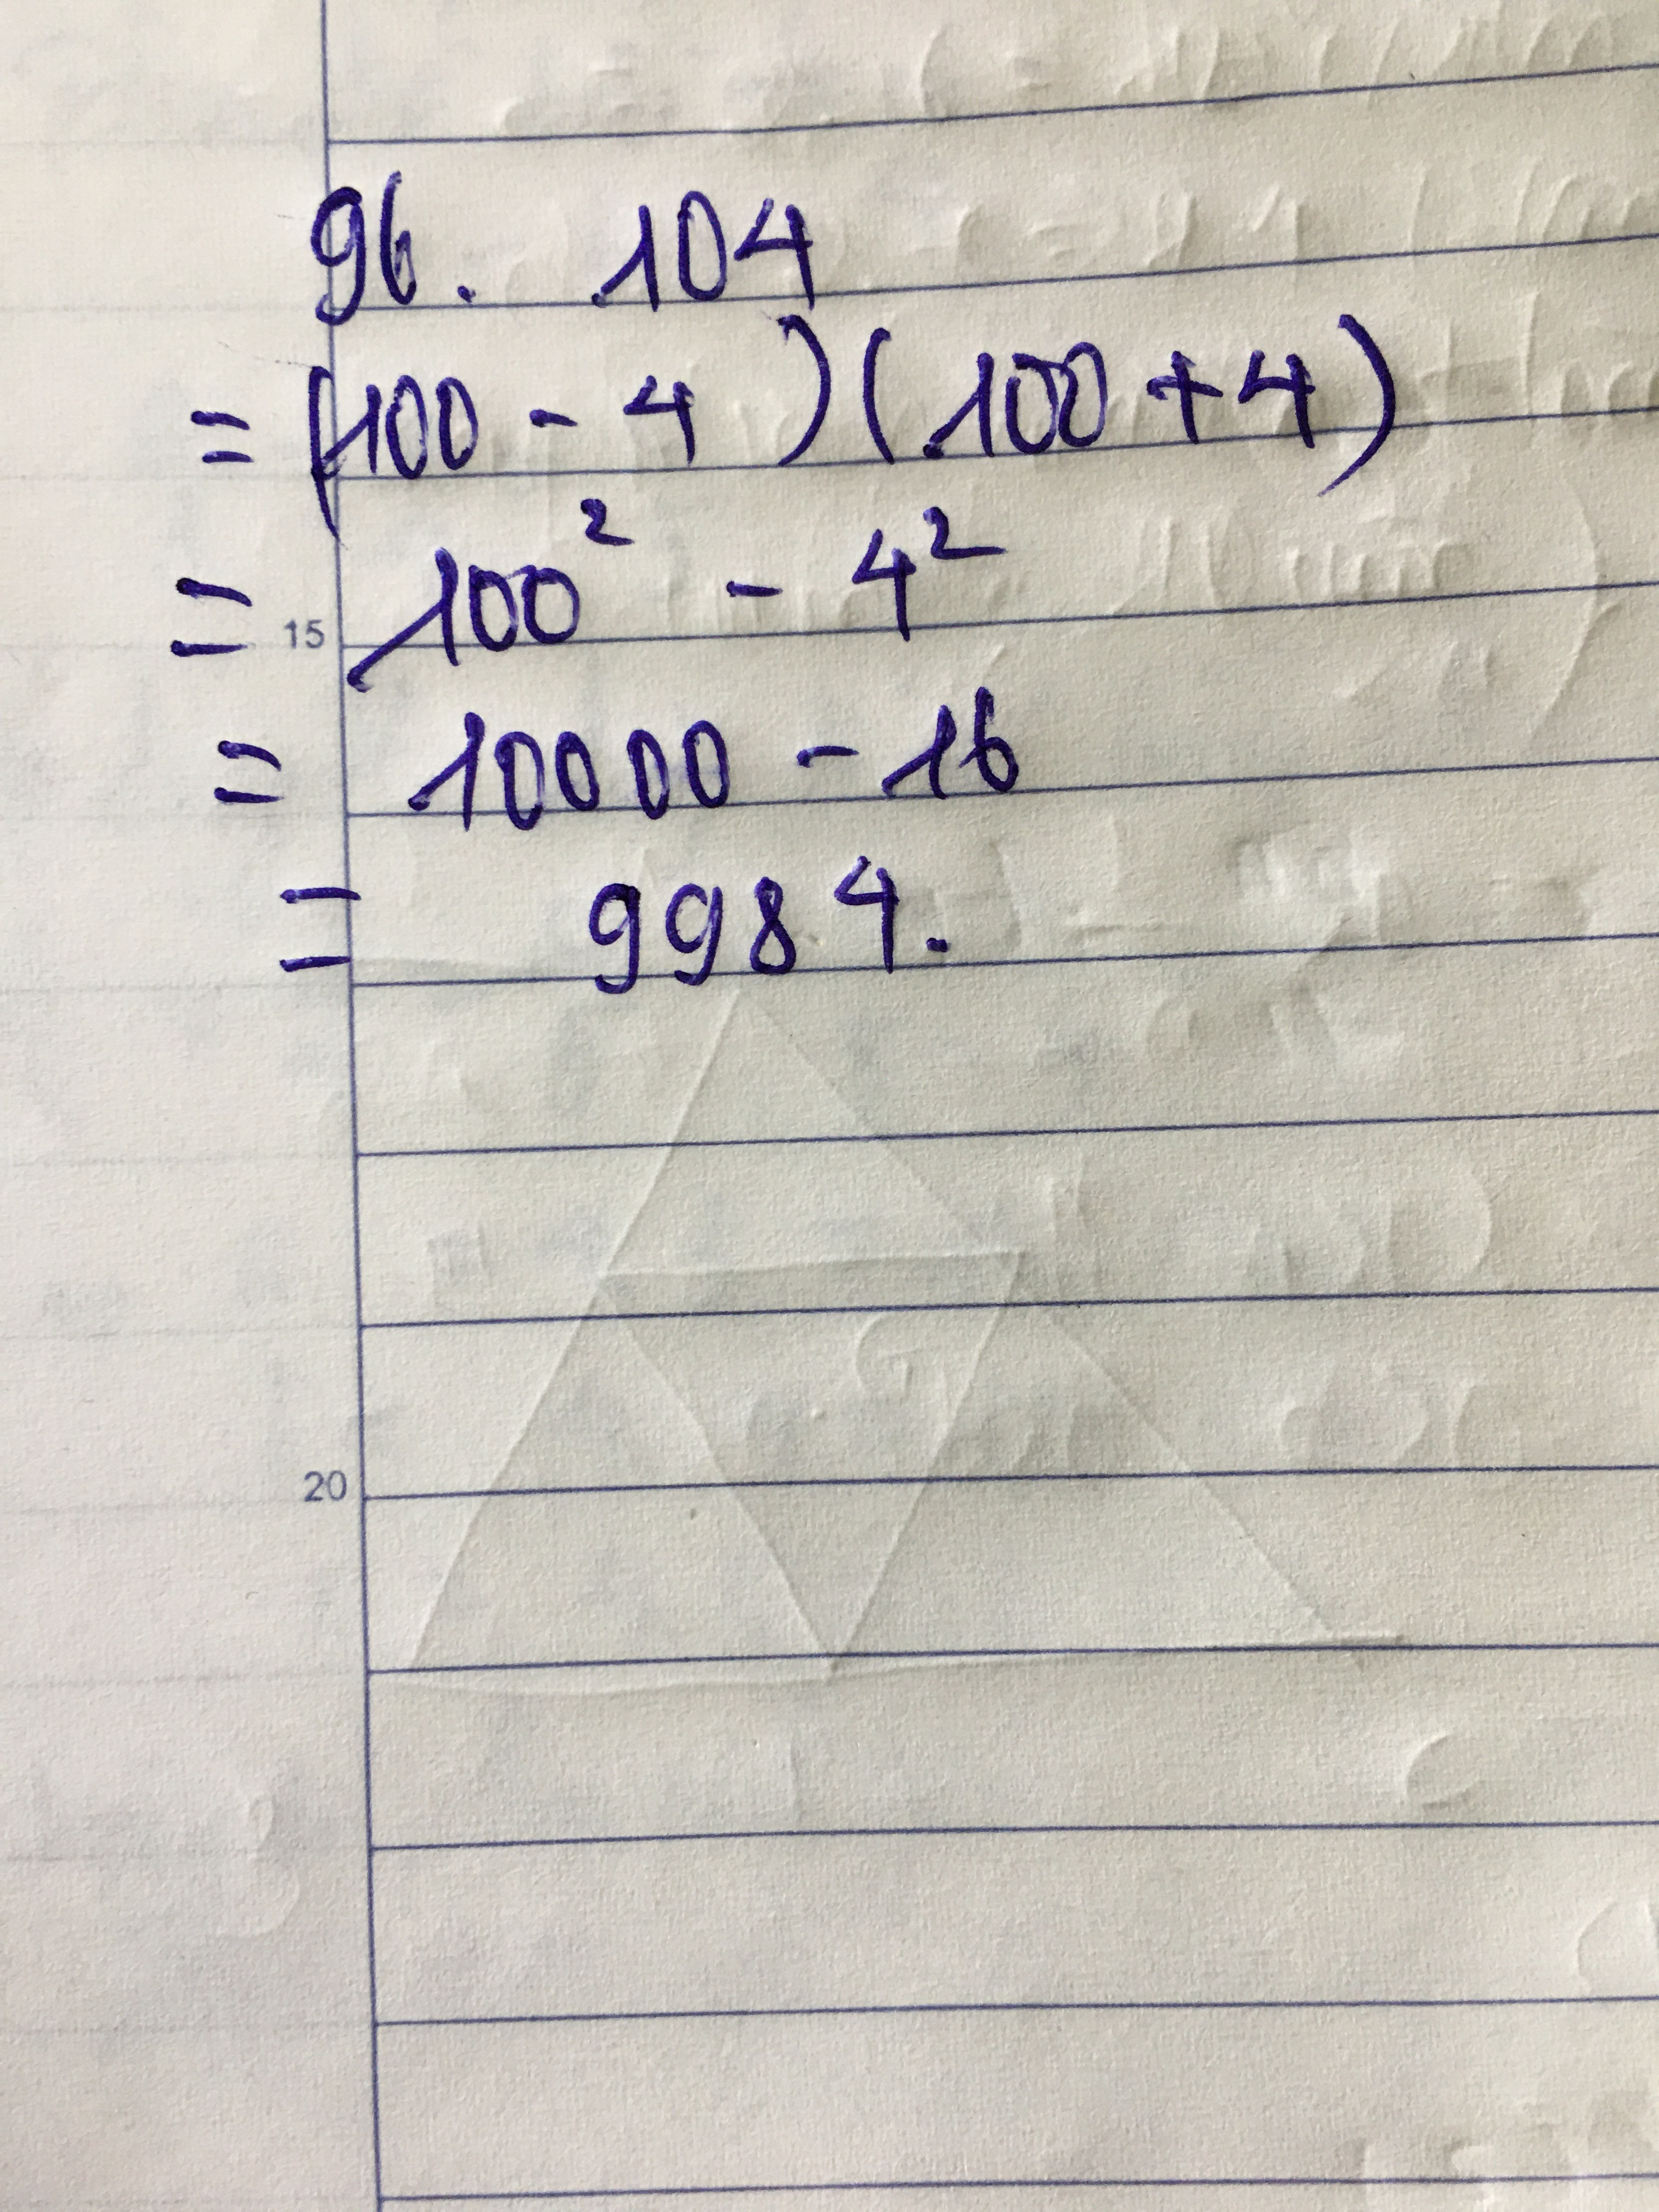 96. 104
= (100 - 4)(100 + 4)
= 100² - 4²
15
= 10000 - 16
= 9984.
20